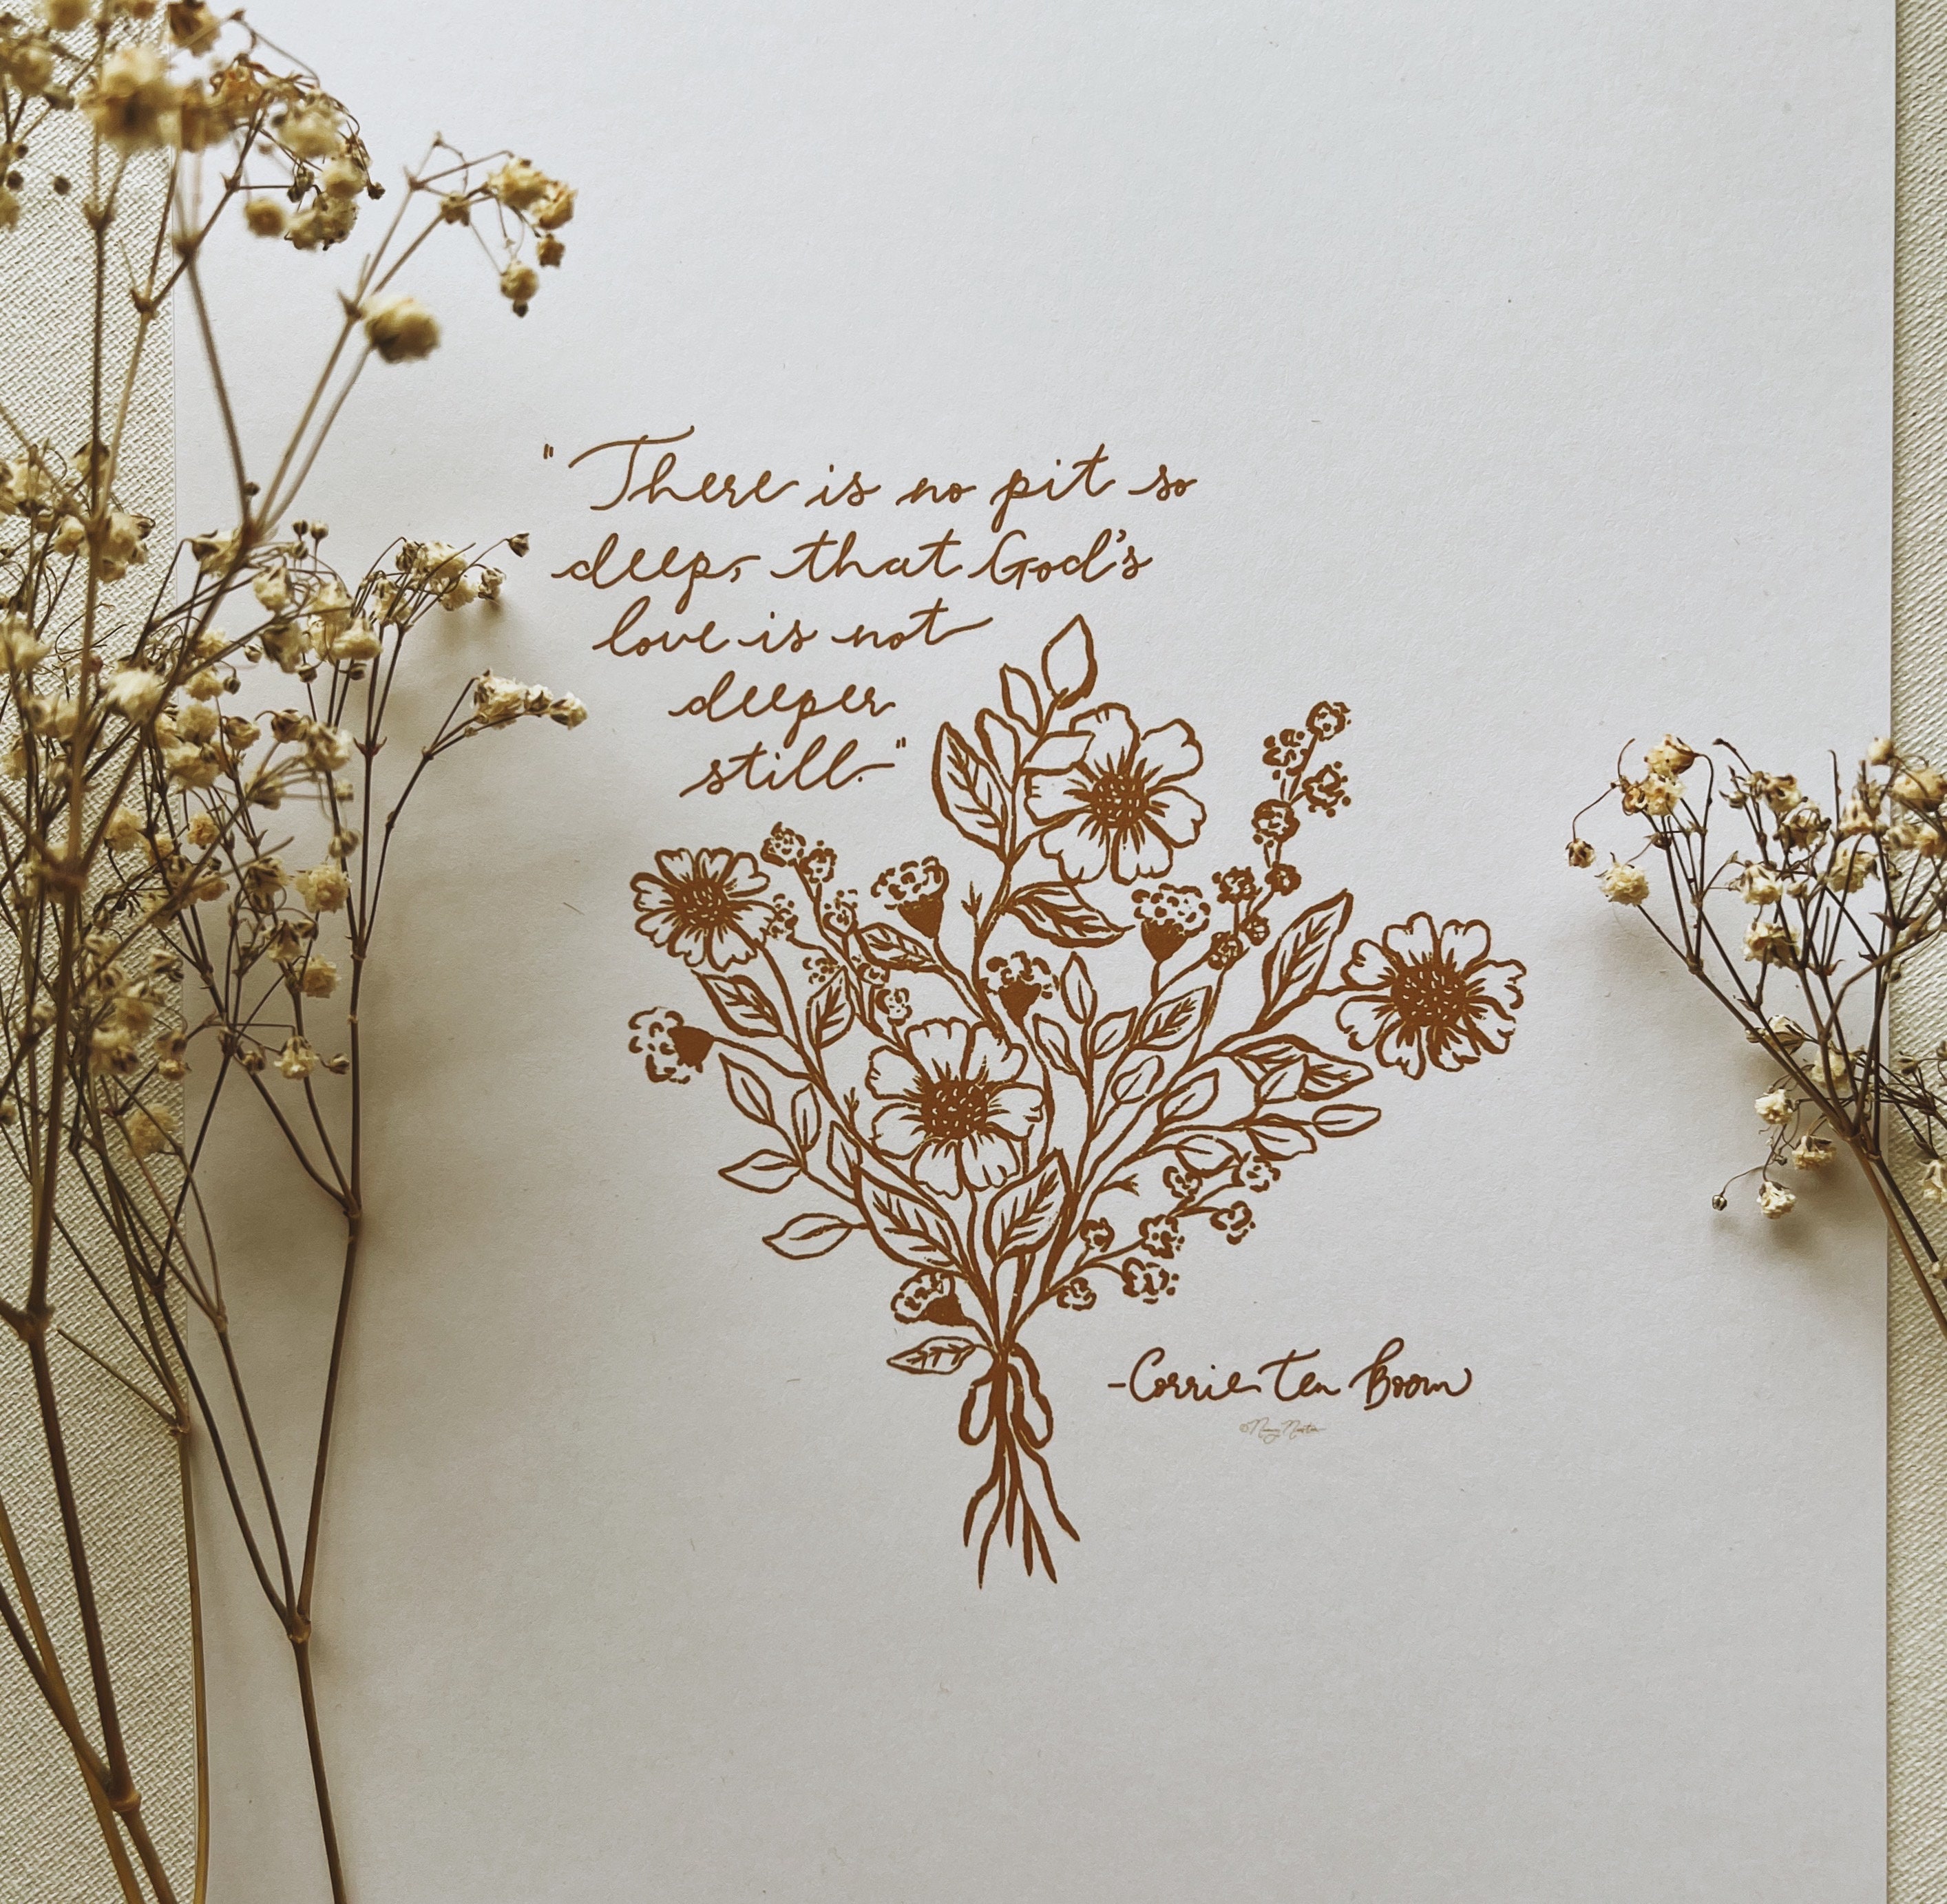 "There is no pit so
deep, that God's
love is not
deeper
still."
-Corrie Ten Boom